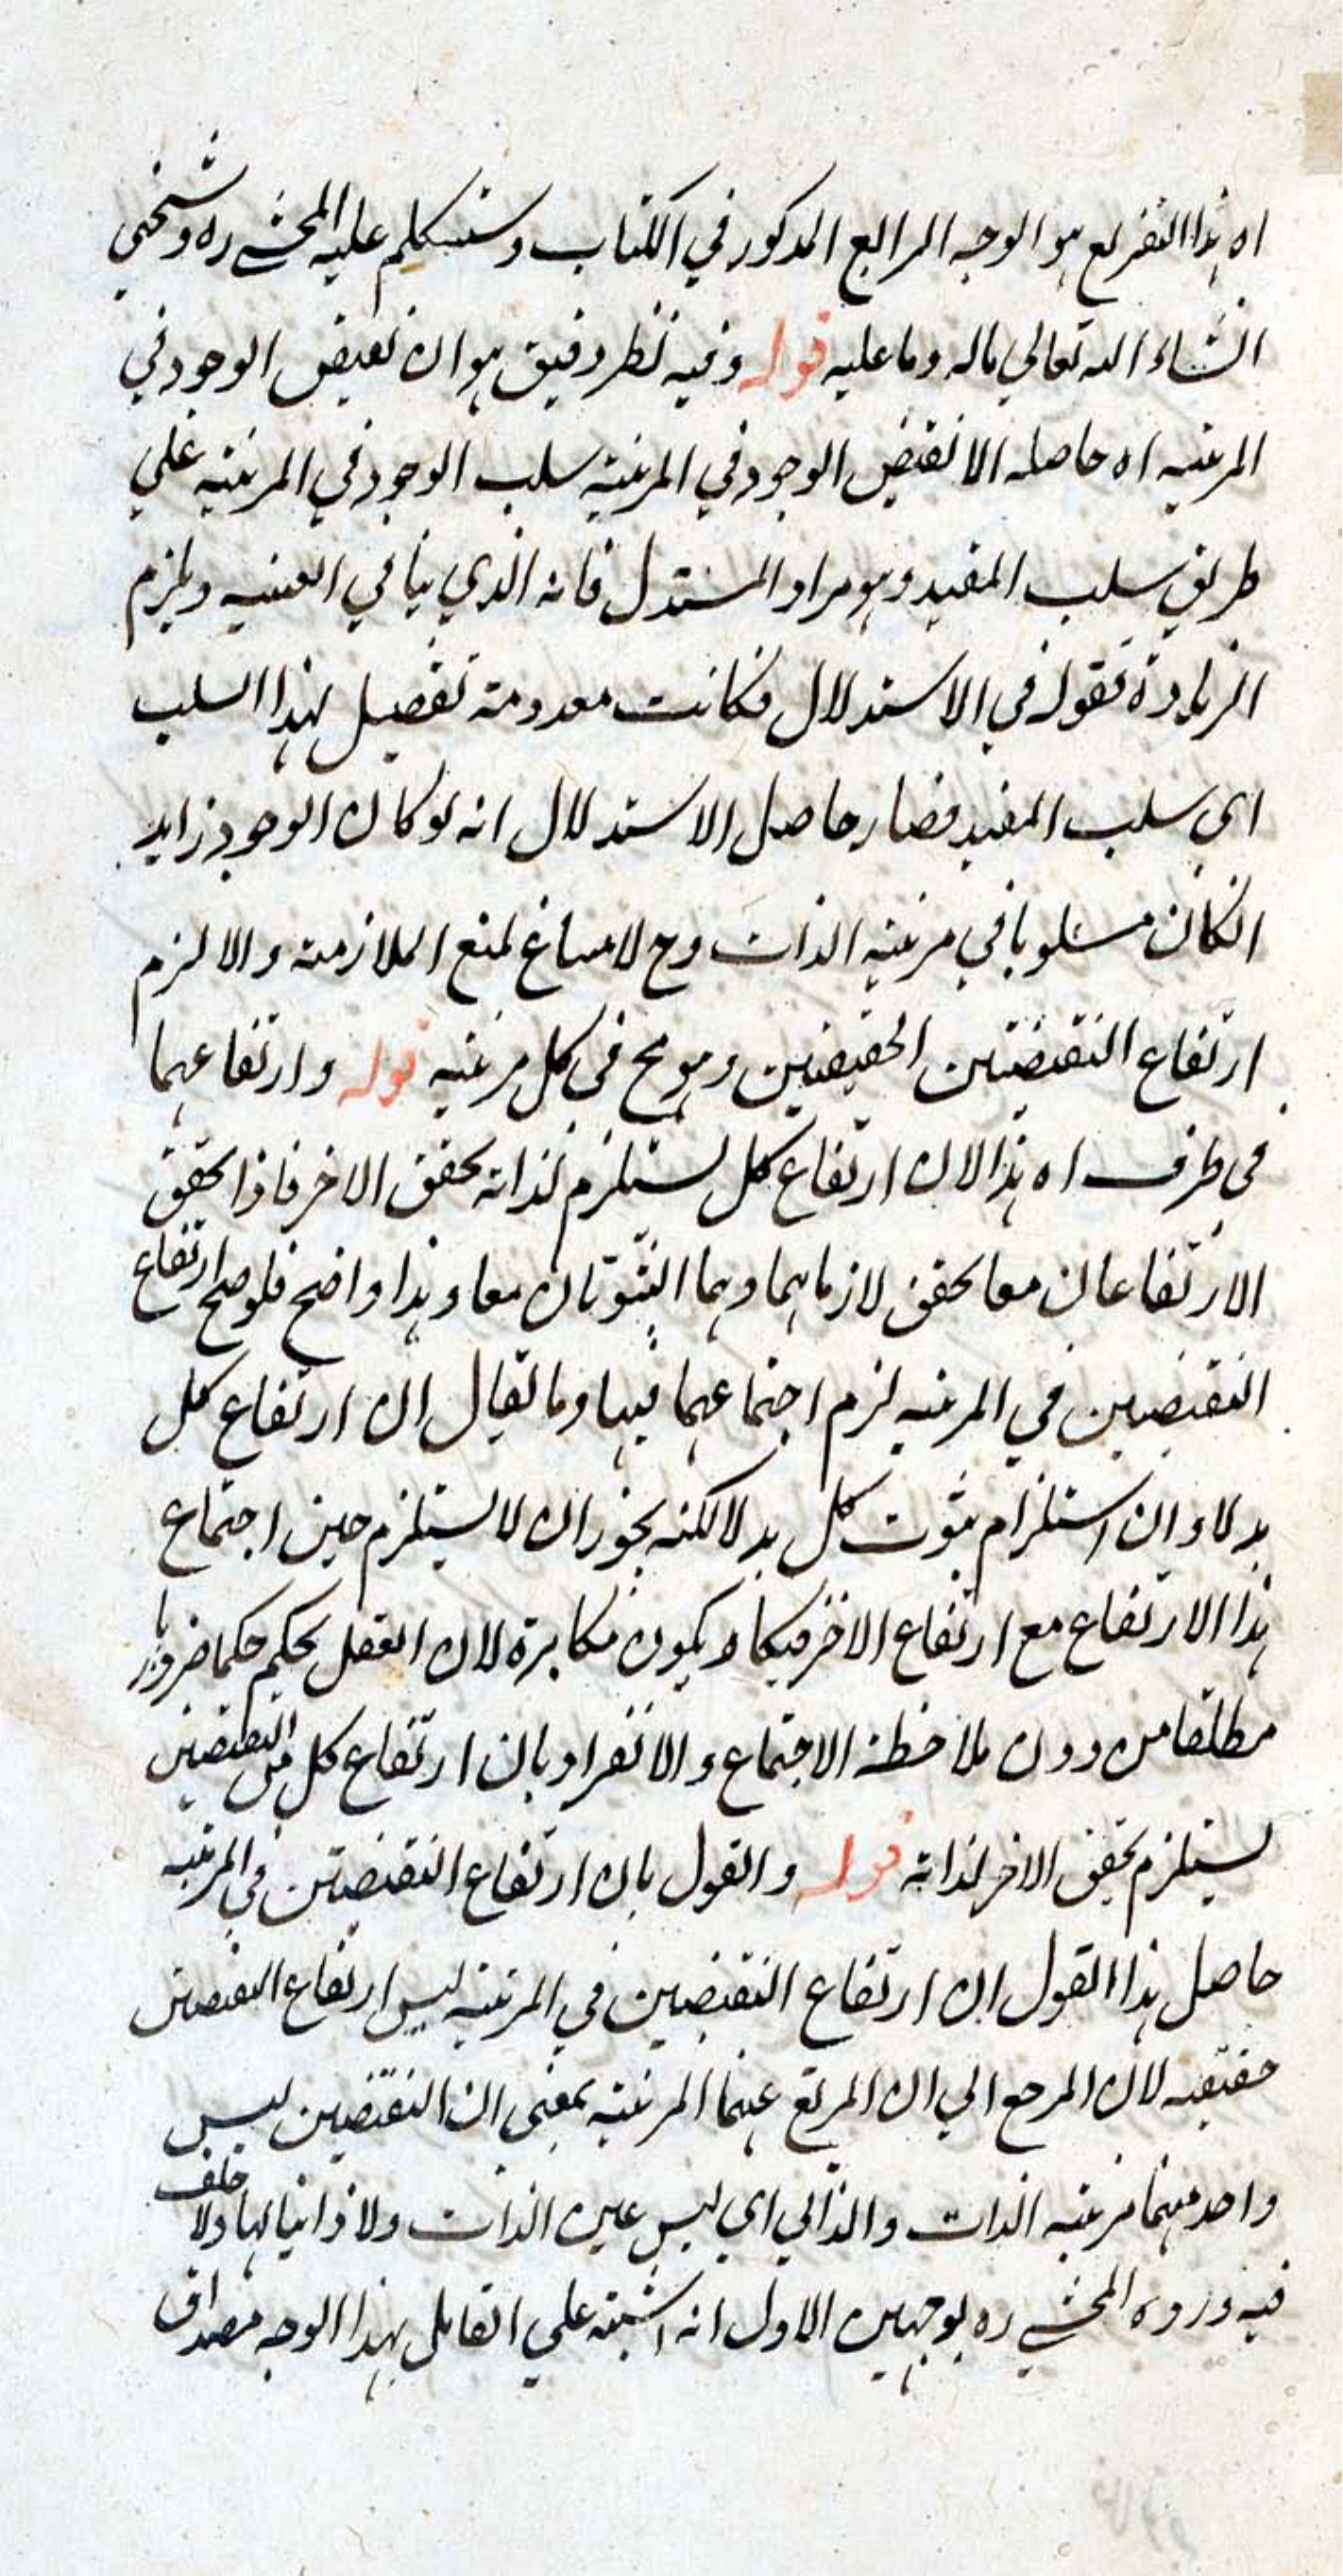 اه هذا التفريع هو الوجه الرابع المذكور في الكتاب وستتكلم عليه المحشي ره وشيخي
انشاء الله تعالي ماله وما عليه قوله وفيه نظر دقيق هو ان نقيض الوجود في
المرتبه اه حاصله الا نقيض الوجود في المرتبة سلب الوجود في المرتبه علي
طريق سلب المقيد وهو مراد المستدل فانه الذي ينافي العينيه ويلزم
الزيادة فقوله في الاستدلال فكانت معدومة تفصيل لهذا السلب
اي سلب المقيد فصار حاصل الاستدلال انه لو كان الوجود زايد
الكان مسلوبا في مرتبه الذات وح لا مساغ لمنع الملازمة والا لزم
ارتفاع النقيضين الحقيقيين وهو مح في كل مرتبه قوله وارتفاعهما
في ظرف اه هذا لان ارتفاع كل يستلزم لذاته تحقق الاخر فاذا تحقق
الارتفاعان معا تحقق لازماهما وهما الثبوتان معا وهذا واضح فلو صح ارتفاع
النقيضين في المرتبه لزم اجتماعهما فيها وما يقال ان ارتفاع كل
بدلا وان استلزام ثبوت كل بدلا لكنه يجوز ان لا يستلزم حين اجتماع
هذا الارتفاع مع ارتفاع الاخر فيكاد يكون مكابرة لان العقل يحكم حكما ضروريا
مطلقا من دون ملاحظة الاجتماع والانفراد بان ارتفاع كل من النقيضين
يستلزم تحقق الاخر لذاته قوله والقول بان ارتفاع النقيضين في المرتبه
حاصل هذا القول ان ارتفاع النقيضين في المرتبة ليس ارتفاع النقيضين
حقيقه لان المرجع الي ان المرتفع عنهما المرتبة بمعني ان النقيضين ليس
واحد منهما مرتبه الذات والذاتي اي ليس عين الذات ولا ذاتيا لها ولا خلف
فيه ورده المحشي ره بوجهين الاول انه اشتبه علي القايل بهذا الوجه مصداق